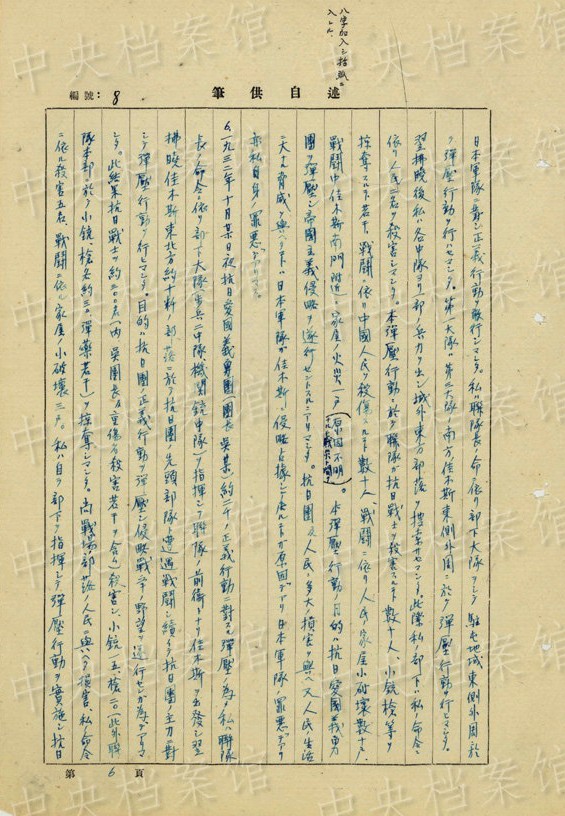 八字加入シ括弧ニ
入レル、
編號：8
述自供筆
日本軍隊ニ對シ正義行動ヲ敢行シマシタ。私ハ聯隊長ノ命ニ依リ部下大隊ヲシテ駐屯地域東側外周ニ於
テ彈壓行動ヲ行ハセマシタ。第一大隊ハ第三大隊ノ南方、佳木斯東側外周ニ於テ彈壓行動ヲ行ヒマシタ。
翌拂曉後私ハ各中隊ヨリ一部ノ兵力ヲ出シ城外東方部落ヲ捜索サセマシタ。此際私ノ部下ハ私ノ命令ニ
依リ人民二名ヲ殺害シマシタ。本彈壓行動ニ於テ聯隊ガ抗日戰士ヲ殺害スルコト數十人、小銃槍等ヲ
掠奪スルコト若干、戰鬪ニ依リ中國人民ヲ殺傷スルコト數十人、戰鬪ニ依リ人民ノ家屋小破壞數十戶、
戰鬪中佳木斯南門附近ノ家屋ノ火災一戶(原因不明)。本彈壓行動ノ目的ハ抗日愛國義勇
團ヲ彈壓シ帝國主義侵略ヲ遂行センガタメニアリマシタ。抗日團及人民ニ多大ノ損害ヲ與ヘ又人民生活
ニ大ナル脅威ヲ與ヘタコトハ日本軍隊ガ佳木斯ヲ侵略占據シテ居ルコトガ原因デアリ日本軍隊ノ罪惡デアリ
亦私自身ノ罪惡デアリマス。
6、一九三二年十月某日夜抗日愛國義勇團(團長 吳某)約二千ノ正義行動ニ對スル彈壓ノ為メ私ハ聯隊
長ノ命令ニ依リ部下大隊(步兵二中隊機關銃中隊)ヲ指揮シテ聯隊ノ前衛トナリ佳木斯ヲ出發シ翌
拂曉佳木斯東北方約十粁ノ部落ニ於テ抗日團ノ先頭部隊ト遭遇戰鬪シ續イテ抗日團主力ニ對
シテ彈壓行動ヲ行ヒマシタ。目的ハ抗日團ノ正義行動ヲ彈壓シ侵略戰爭ノ野望ヲ遂行センガ為デアリマ
シタ。此結果抗日戰士ヲ約二〇〇名(內 吳團長及重傷者殺害若干ヲ含ム)殺害シ、小銃一五、槍二〇(此外聯
隊本部ニ於テ小銃、槍各約三〇、彈藥若干)ヲ掠奪シマシタ。尚戰場部落ノ人民ニ與ヘタ損害ハ私ノ命令
ニ依ル殺害五名、戰鬪ニ依ル家屋ノ小破壞三戶。私ハ自ラ部下ヲ指揮シテ彈壓行動ヲ實施シ抗日
第6頁
中央档案馆